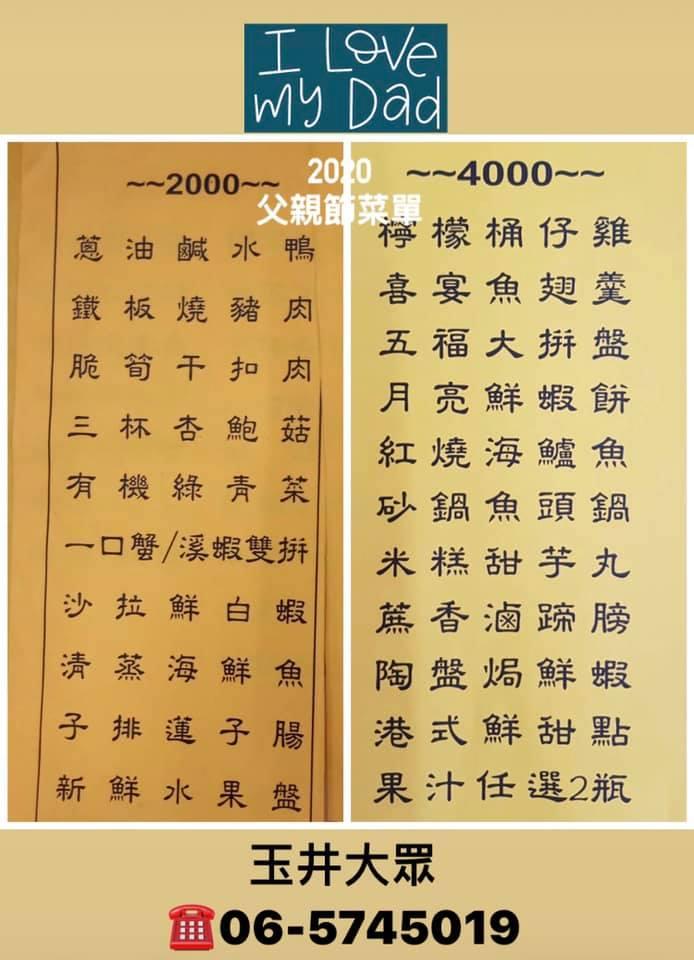 I Love
my Dad
2020
父親節菜單
~~2000~~
蔥油鹹水鴨
鐵板燒豬肉
脆筍干扣肉
三杯杏鮑菇
有機綠青菜
一口蟹/溪蝦雙拚
沙拉鮮白蝦
清蒸海鮮魚
子排蓮子腸
新鮮水果盤
~~4000~~
檸檬桶仔雞
喜宴魚翅羹
五福大拚盤
月亮鮮蝦餅
紅燒海鱸魚
砂鍋魚頭鍋
米糕甜芋丸
蔗香滷蹄膀
陶盤焗鮮蝦
港式鮮甜點
果汁任選2瓶
玉井大眾
☎06-5745019